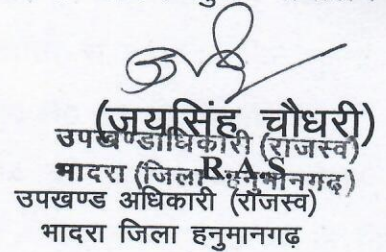 (जयसिंह चौधरी)
उपखण्डाधिकारी (राजस्व)
R.A.S
भादरा (जिला हनुमानगढ)
उपखण्ड अधिकारी (राजस्व)
भादरा जिला हनुमानगढ़